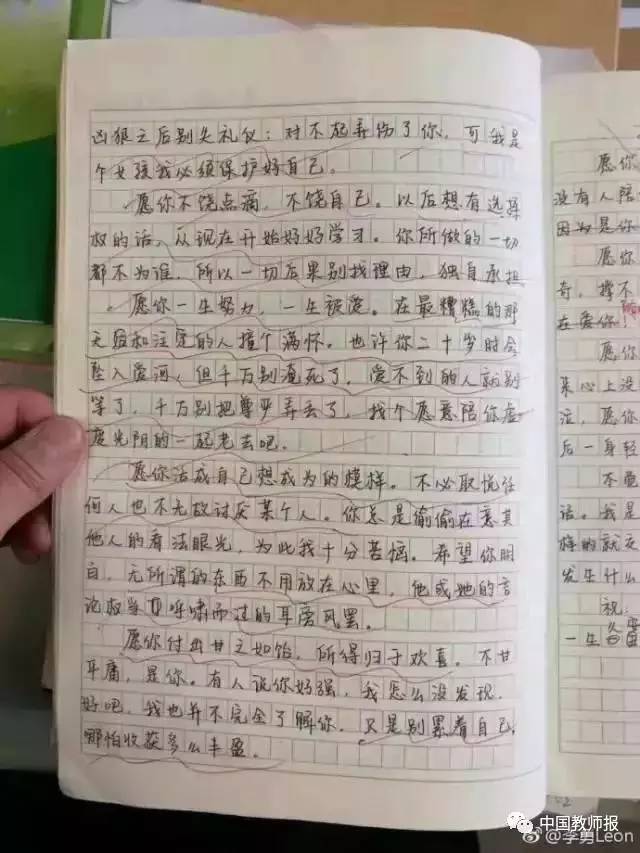 凶狠之后别失礼仪：对不起弄伤了你，可我是
个女孩我必须保护好自己。
愿你不饶点滴，不饶自己。以后想有选择
权的话，从现在开始好好学习。你所做的一切
都不为谁，所以一切后果别找理由，独自承担
愿你一生努力，一生被爱。在最糟糕的那
天蓝和注定的人撞个满怀。也许你二十岁时会
坠入爱河，但千万别淹死了，爱不到的人就别
等了，千万别把尊严弄丢了，找个愿意陪你虚
度光阴的一起老去吧。
愿你活成自己想成为的模样。不必取悦任
何人也不无故讨厌某个人。你总是偷偷在意其
他人的看法眼光，为此我十分苦恼。希望你明
白，无所谓的东西不用放在心里，他或她的言
论权当呼啸而过的耳旁风罢。
愿你付出甘之如饴，所得归于欢喜。不甘
平庸，是你。有人说你好强，我怎么没发现，
好吧，我也并不完全了解你，只是别累着自己，
哪怕收获多么丰盈。
愿你
没有人陪
因为是你
愿你
奇，撑不
在爱你！
愿你
来心上没
泣，愿你
后一身轻
不要
话。我是
发生什么
祝：
一生
中国教师报
@李勇Leon